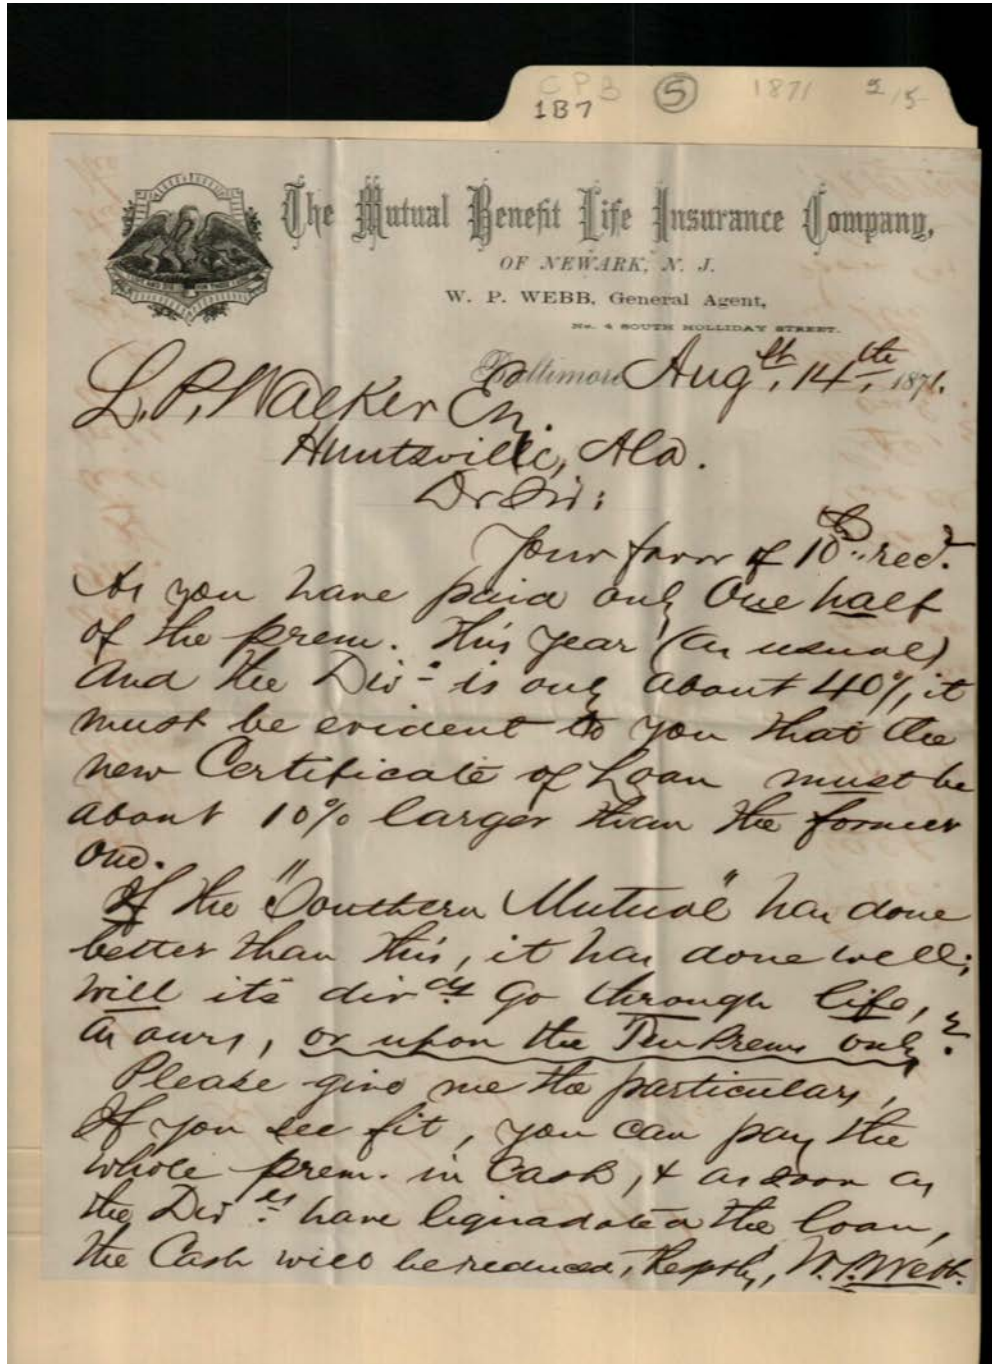 CPB 5 1871 2/5
1B7
The Mutual Benefit Life Insurance Company,
OF NEWARK, N. J.
W. P. WEBB, General Agent,
No. 4 SOUTH HOLLIDAY STREET.
Baltimore Augst. 14th, 1871.
L. P. Walker Esq.
Huntsville, Ala.
Dr Sir:
Your favor of 10th recd.
As you have paid only One half
of the prem. this year (as usual)
and the Divd is only about 40%, it
must be evident to you that the
new Certificate of Loan must be
about 10% larger than the former
one.
If the "Southern Mutual" has done
better than this, it has done well;
will its divds go through life,
as ours, or upon the Ten Prems only?
Please give me the particulars,
If you see fit, you can pay the
whole prem. in Cash, & as soon as
the Divds have liquadated the loan,
the Cash will be reduced, Respty, W. P. Webb.